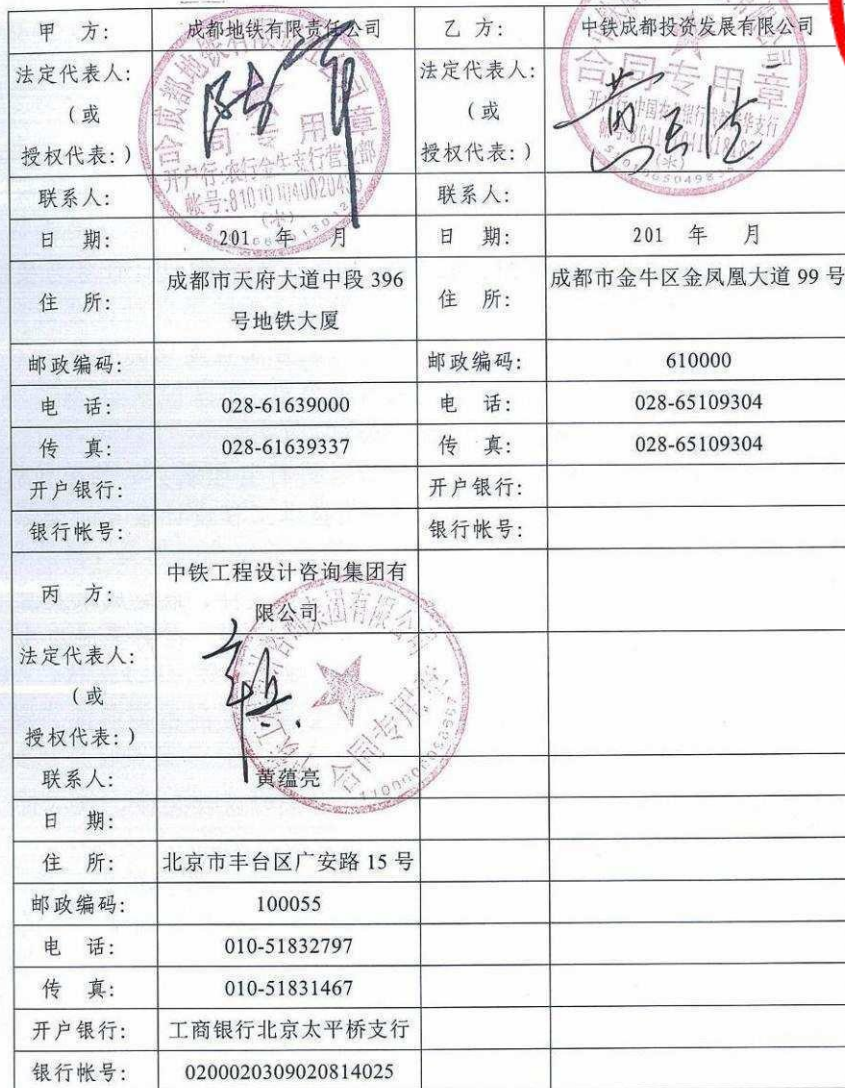 甲 方: 成都地铁有限责任公司 乙 方: 中铁成都投资发展有限公司
法定代表人: 法定代表人:
(或 (或
授权代表:) 授权代表:)
联系人: 联系人:
日 期: 201 年 月 日 期: 201 年 月
住 所: 成都市天府大道中段 396 住 所: 成都市金牛区金凤凰大道 99 号
号地铁大厦
邮政编码: 邮政编码: 610000
电 话: 028-61639000 电 话: 028-65109304
传 真: 028-61639337 传 真: 028-65109304
开户银行: 开户银行:
银行帐号: 银行帐号:
丙 方: 中铁工程设计咨询集团有
限公司
法定代表人:
(或
授权代表:)
联系人: 黄蕴亮
日 期:
住 所: 北京市丰台区广安路 15 号
邮政编码: 100055
电 话: 010-51832797
传 真: 010-51831467
开户银行: 工商银行北京太平桥支行
银行帐号: 0200020309020814025
合同专用章
合同专用章